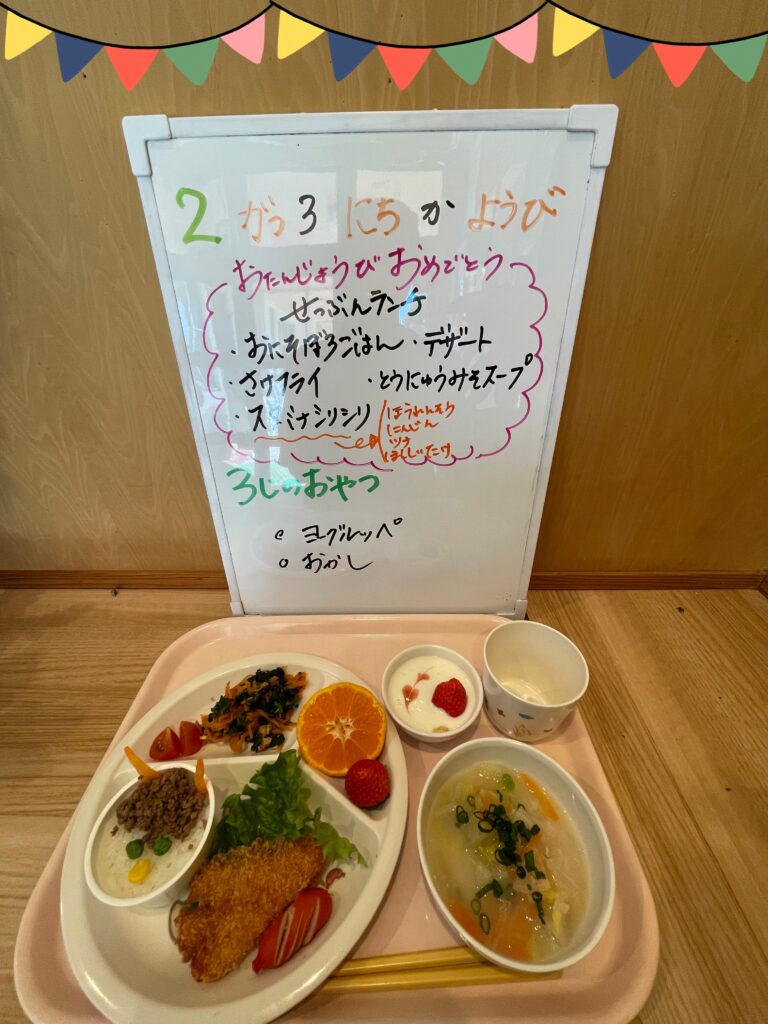 2 がつ 3 にち か ようび
おたんじょうび おめでとう
せつぶんランチ
・おにそぼろごはん ・デザート
・さけフライ ・とうにゅうみそスープ
・スーパナシリシリ
ほうれんそう
にんじん
ツナ
ほししいたけ
3じのおやつ
○ ヨーグルッペ
○ おかし